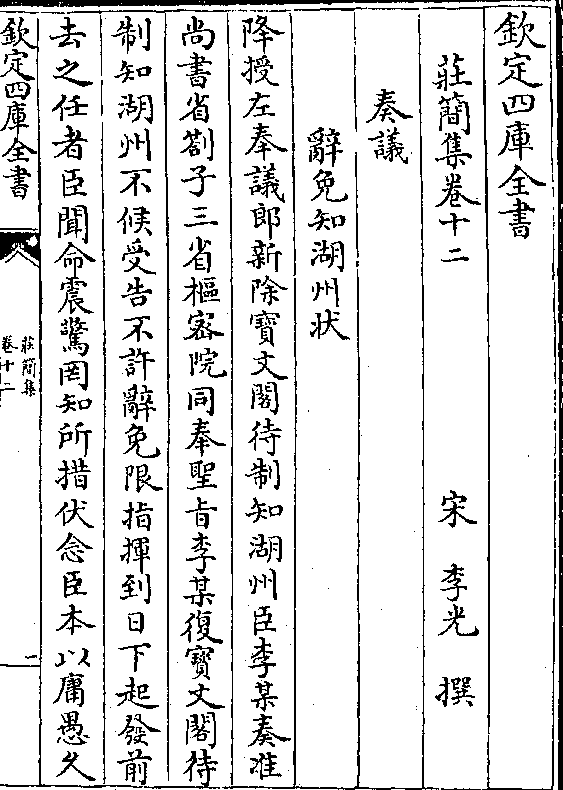 欽定四庫全書
莊簡集卷十二
宋 李光 撰
奏議
辭免知湖州狀
降授左奉議郎新除寶文閣待制知湖州臣李某奏准
尚書省劄子三省樞密院同奉聖旨李某復寶文閣待
制知湖州不候受告不許辭免限指揮到日下起發前
去之任者臣聞命震驚罔知所措伏念臣本以庸愚久
欽定四庫全書
莊簡集
卷十二
一